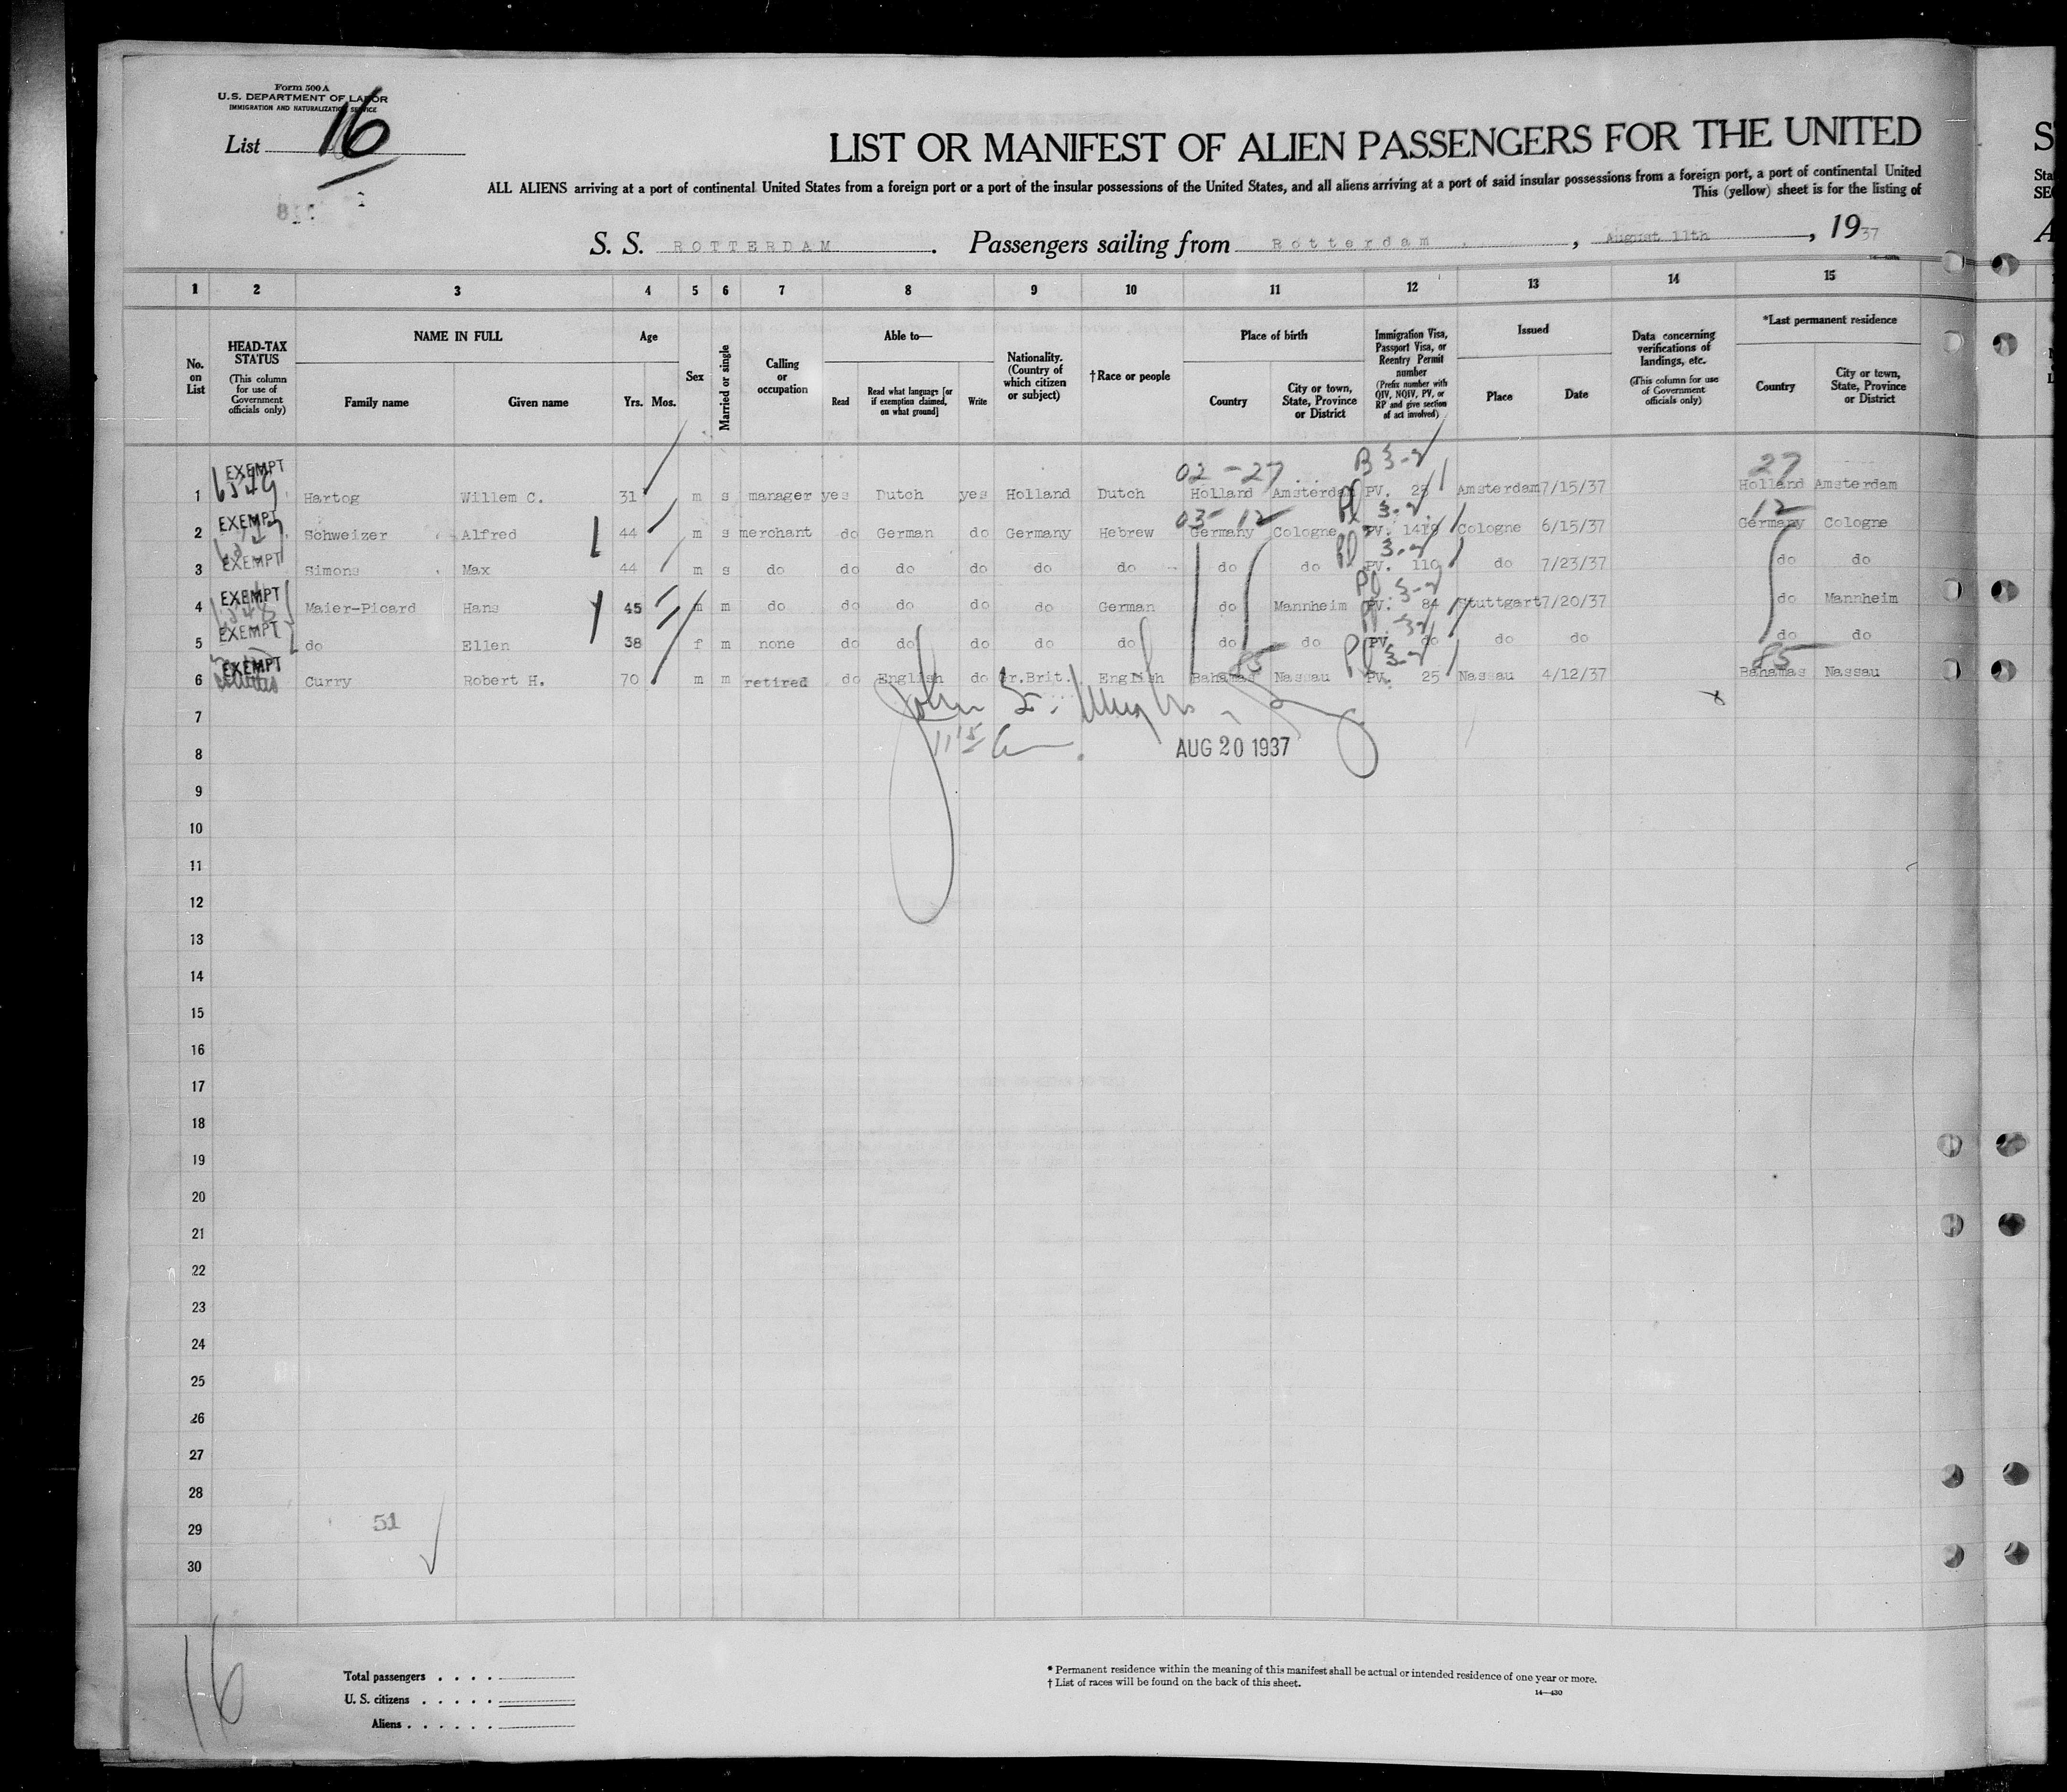 Form 500 A
U.S. DEPARTMENT OF LABOR
IMMIGRATION AND NATURALIZATION SERVICE
List 16
LIST OR MANIFEST OF ALIEN PASSENGERS FOR THE UNITED
ALL ALIENS arriving at a port of continental United States from a foreign port or a port of the insular possessions of the United States, and all aliens arriving at a port of said insular possessions from a foreign port, a port of continental United
This (yellow) sheet is for the listing of
S. S. ROTTERDAM. Passengers sailing from Rotterdam, August 11th, 1937
1 2 3 4 5 6 7 8 9 10 11 12 13 14 15
No. on List
HEAD-TAX STATUS
(This column for use of Government officials only)
NAME IN FULL
Family name Given name
Age
Yrs. Mos.
Sex
Married or single
Calling or occupation
Able to—
Read
Read what language [or if exemption claimed, on what ground]
Write
Nationality. (Country of which citizen or subject)
†Race or people
Place of birth
Country
City or town, State, Province or District
Immigration Visa, Passport Visa, or Reentry Permit number
(Prefix number with QIV, NQIV, PV, or RP and give section of act involved)
Issued
Place Date
Data concerning verifications of landings, etc.
(This column for use of Government officials only)
*Last permanent residence
Country
City or town, State, Province or District
02 - 27 B 3-2 27
1 EXEMPT Hartog Willem C. 31 m s manager yes Dutch yes Holland Dutch Holland Amsterdam PV. 25 Amsterdam 7/15/37 Holland Amsterdam
03 12 Pl 3-2 12
2 EXEMPT Schweizer Alfred 44 m s merchant do German do Germany Hebrew Germany Cologne PV. 1419 Cologne 6/15/37 Germany Cologne
Pl 3-2
3 EXEMPT Simons Max 44 m s do do do do do do do do PV. 110 do 7/23/37 do do
Pl 3-2
4 EXEMPT Maier-Picard Hans 45 m m do do do do do German do Mannheim PV. 84 Stuttgart 7/20/37 do Mannheim
5 EXEMPT do Ellen 38 f m none do do do do do do do PV. do do do do do
85 Pl 3-2 85
6 EXEMPT Curry Robert H. 70 m m retired do English do Gr.Brit. English Bahamas Nassau PV. 25 Nassau 4/12/37 Bahamas Nassau
7
John
8 AUG 20 1937
9
10
11
12
13
14
15
16
17
18
19
20
21
22
23
24
25
26
27
28
29 51
30
16
Total passengers . . . .
U. S. citizens . . . . .
Aliens . . . . . .
* Permanent residence within the meaning of this manifest shall be actual or intended residence of one year or more.
† List of races will be found on the back of this sheet.
14—430